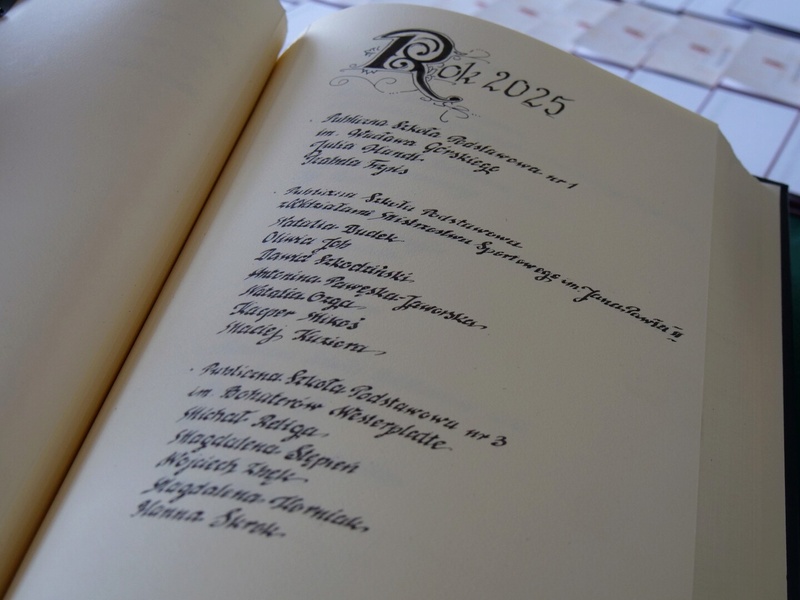 Rok 2025
· Publiczna Szkoła Podstawowa nr 1
im. Wacława Górskiego
Julia Handt
Izabela Frpis
· Publiczna Szkoła Podstawowa
z Oddziałami Mistrzostwa Sportowego im. Jana Pawła II
Natalia Dudek
Oliwia Job
Dawid Szkodziński
Antonina Pawęska-Jaworska
Natalia Orga
Kacper Mikoś
Maciej Kuziora
· Publiczna Szkoła Podstawowa nr 3
im. Bohaterów Westerplatte
Michał Religa
Magdalena Stępień
Wojciech
Magdalena Korniak
Hanna Skrok